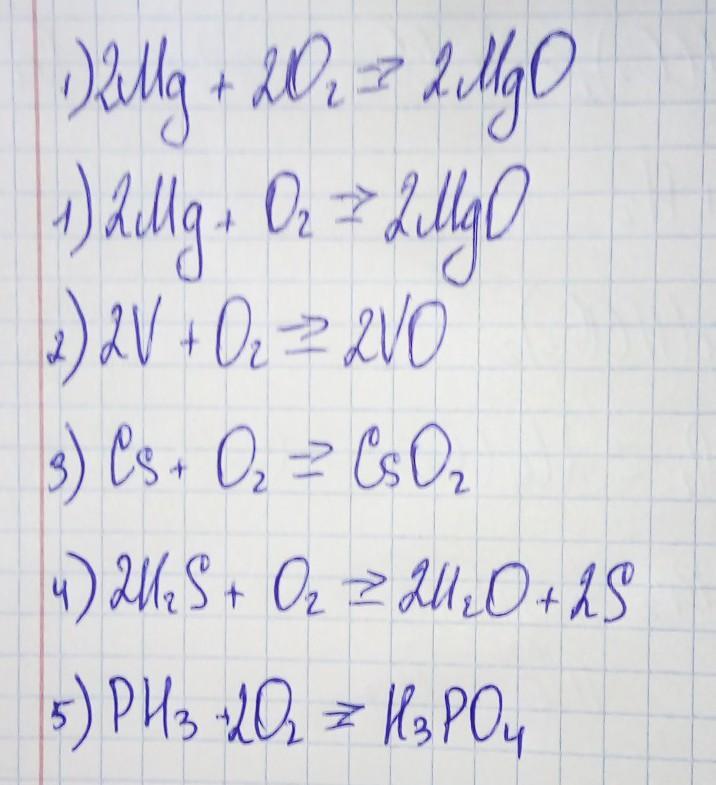 1) 2Mg + 2O₂ ⇒ 2MgO
1) 2Mg + O₂ ⇒ 2MgO
2) 2V + O₂ ⇒ 2VO
3) Cs + O₂ ⇒ CsO₂
4) 2H₂S + O₂ ⇒ 2H₂O + 2S
5) PH₃ + 2O₂ ⇒ H₃PO₄